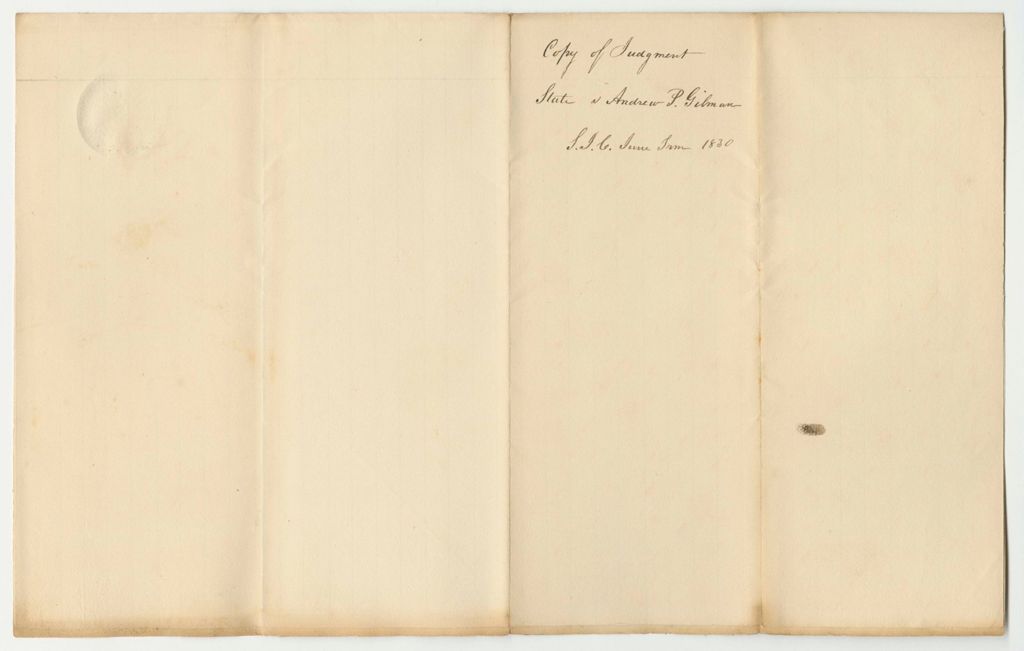 Copy of Judgment
State v Andrew P. Gilman
S.J.C. June Term 1830